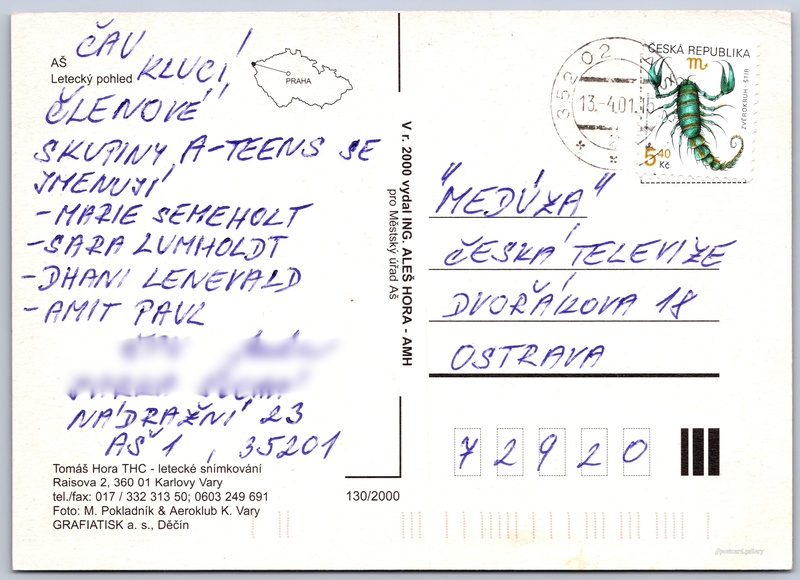 AŠ
Letecký pohled
PRAHA
ČAU
KLUCI,
ČLENOVÉ
SKUPINY A-TEENS SE
JMENUJÍ
- MARIE SEMEHOLT
- SARA LUMHOLDT
- DHANI LENEVALD
- AMIT PAUL
NÁDRAŽNÍ 23
AŠ 1, 35201
Tomáš Hora THC - letecké snímkování
Raisova 2, 360 01 Karlovy Vary
tel./fax: 017 / 332 313 50; 0603 249 691
Foto: M. Pokladník & Aeroklub K. Vary
GRAFIATISK a. s., Děčín
130/2000
V r. 2000 vydal ING. ALEŠ HORA - AMH
pro Městský úřad Aš
352 02
13.-4.01.15
ČESKÁ REPUBLIKA
ZVĚROKRUH - ŠTÍR
5,40
Kč
"MEDÚZA"
ČESKÁ TELEVIZE
DVOŘÁKOVA 18
OSTRAVA
72920